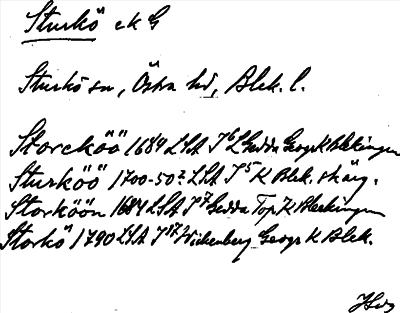 Sturkö ek G
Sturkö sn, Östra hd, Blek. l.
Storcköö 1689 LSA J⁶ L Gedda Geogr K Blekingen
Sturköö 1700-50? LSA J⁵ K Blek. skärg.
Storköön 1684 LSA J⁷ Gedda Top. K Bleckingen
Storkö 1790 LSA J¹⁷ Wickenberg Geogr K Blek.